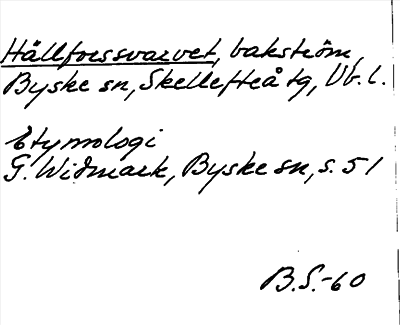 Hällforssvarvet, bakström,
Byske sn, Skellefteå tg, Vb. l.
Etymologi
G. Widmark, Byske sn, s. 51
B.S.-60